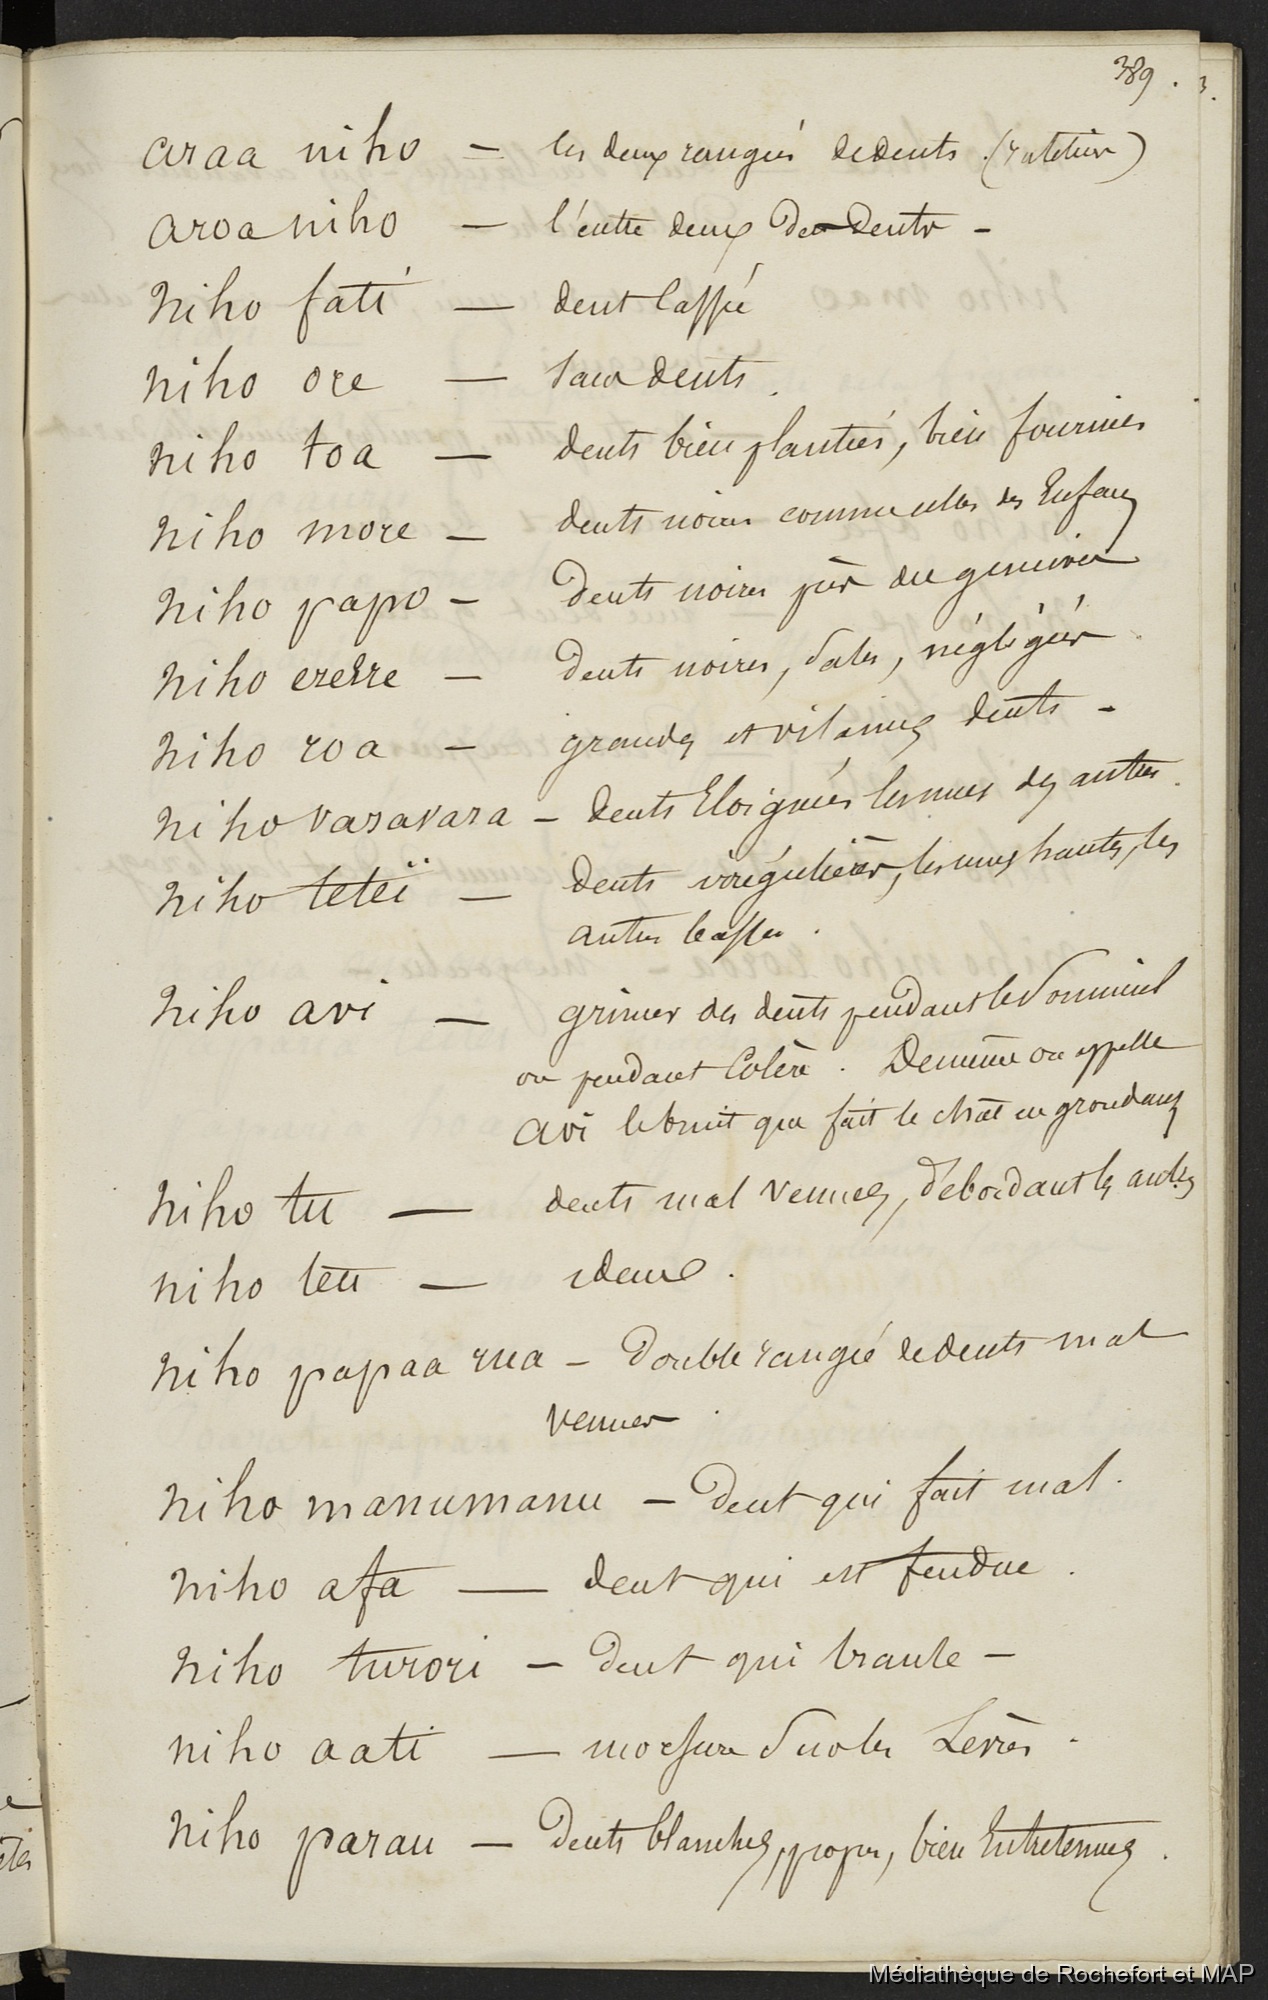 389. 3.
araa niho — les deux rangées de dents. (ratelier)
aroa niho — l'entre deux des dents —
niho fati — dent cassée
niho ore — sans dents.
niho toa — dents bien plantées, bien fournies
niho more — dents noires comme celles des Enfans
niho papo — dents noires près des gencives
niho erere — dents noires, sales, négligées
niho roa — grandes et vilaines dents —
niho varavara — dents Eloignées les unes des autres.
niho teteï — dents irrégulières, les unes hautes, les
autres basses.
niho avi — grincer des dents pendant le sommeil
ou pendant Colère. De même on appelle
avi le bruit que fait le chat en grondant
niho tu — dents mal venues, débordant les autres
niho teu — idem.
niho papaa rua — double rangée de dents mal
venues.
niho manumanu — dent qui fait mal.
niho afa — dent qui est fendue.
niho turori — dent qui branle —
niho aati — morsure sur les Lèvres.
niho parau — dents blanches, propres, bien Entretenues.
Médiathèque de Rochefort et MAP